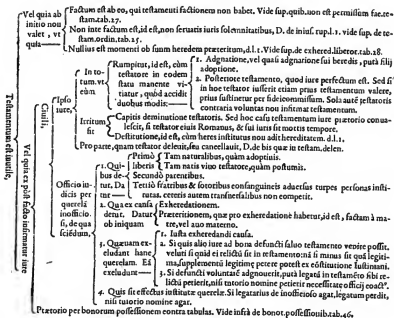 Testamentum est inutile,
Vel quia ab
initio non
valet, vt
quia
Factum est ab eo, qui testamenti factionem non habet. Vide sup. quib. non est permissum fac. te-
stam. tab. 17.
Non iure factum est, id est, non seruatis iuris solemnitatibus, D. de inius. rup. l. 1. vide sup. de te-
stam. ordin. tab. 15.
Nullius est momenti ob suum heredem præteritum, d. l. 1. Vide sup. de exhered. liberor. tab. 18.
Vel quia ex post facto infirmatur iure
Ciuili,
Ipso
iure,
In to-
tum. vt
cùm
Rumpitur, id est, cùm
testatore in eodem
statu manente vi-
tiatur, quod accidit
duobus modis:
1. Adgnatione, vel quasi adgnatione sui heredis, putà filij
adoptione.
2. Posteriore testamento, quod iure perfectum est. Sed si
in hoc testator iusserit etiam prius testamentum valere,
prius sustinetur per fideicommissum. Sola autē testatoris
contraria voluntas non infirmat testamentum.
Irritum
fit
Capitis deminutione testatoris. Sed hoc casu testamentum iure prætorio conua-
lescit, si testator ciuis Romanus, & sui iuris mortis tempore.
Destitutione, id est, cùm heres institutus non adit hereditatem. d. l. 1.
Pro parte, quam testator deleuit, seu cancellauit, D. de his quæ in testam. delen.
Officio iu-
dicis per
querelā
inofficio.
si, de qua
sciēdum,
1. Qui-
bus de-
tur. Da
tur
Primò
liberis
Tam naturalibus, quàm adoptiuis.
Tam natis viuo testatore, quàm postumis.
Secundò parentibus.
Tertiò fratribus & sororibus consanguineis aduersus turpes personas insti-
tutas. ceteris autem transuersalibus non competit.
2. Qua ex causa
detur. Datur
ob iniquam
Exheredationem.
Præteritionem, quæ pro exheredatione habetur, id est, factam à ma-
tre, vel auo materno.
3. Quænam ex-
cludant hanc
querelam. Eā
excludunt
1. Iusta exheredandi causa.
2. Si quis alio iure ad bona defuncti saluo testamento venire possit.
veluti si quid ei relictū sit in testamento: nā si minus sit quā legiti-
ma, supplementū legitimę petere potest ex cōstitutione Iustiniani.
3. Si defuncti voluntatē adgnouerit, putà legatū in testamēto sibi re-
lictū petierit, nisi tutorio nomine petierit necessitate officij coactꝰ.
4. Quis sit effectus institutæ querelæ. Si legatarius de inofficioso agat, legatum perdit,
nisi tutorio nomine agat.
Prætorio per bonorum possessionem contra tabulas. Vide infrà de bonor. possessionib. tab. 46.